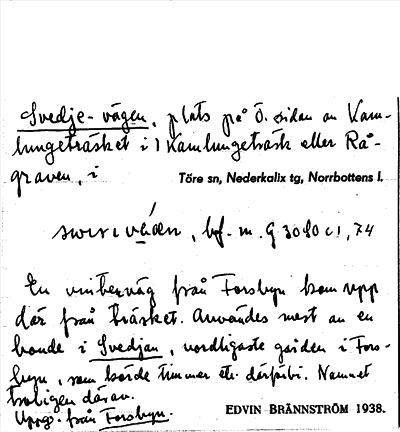 Svedje-vägen, plats på Ö. sidan av Kam-
lungeträsket i) Kamlungeträsk eller Rå-
graven, i
Töre sn, Nederkalix tg, Norrbottens l.
bf. m. G 3080 c1, 74
En vinterväg från Forsbyn kom upp
där från träsket. Användes mest av en
bonde i Svedjan, nordligaste gården i Fors-
byn, som körde timmer etc. därförbi. Namnet
troligen därav.
Uppg. från Forsbyn.
EDVIN BRÄNNSTRÖM 1938.